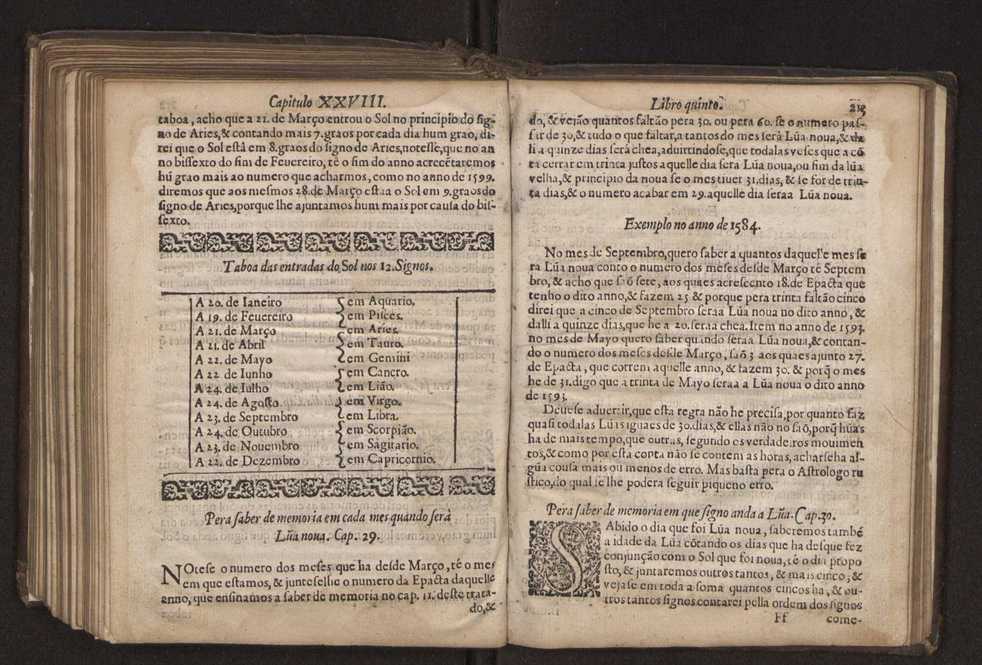 Capitulo XXVIII.
taboa, acho que a 21. de Março entrou o Sol no principio do sig-
no de Aries, & contando mais 7. graos por cada dia hum grao, di-
rei que o Sol està em 8. graos do signo de Aries, notesse, que no an
no bissexto do fim de Feuereiro, tè o fim do anno acrecẽtaremos
hũ grao mais ao numero que acharmos, como no anno de 1599.
diremos que aos mesmos 28. de Março estaa o Sol em 9. graos do
signo de Aries, porque lhe ajuntamos hum mais por causa do bis-
sexto.
Taboa das entradas do Sol nos 12. Signos.
A 20. de Ianeiro em Aquario.
A 19. de Feuereiro em Pisces.
A 21. de Março em Aries.
A 21. de Abril em Tauro.
A 22. de Mayo em Gemini
A 22 de Iunho em Cancro.
A 24. de Iulho em Lião.
A 24. de Agosto em Virgo.
A 23. de Septembro em Libra.
A 24. de Outubro em Scorpião.
A 23. de Nouembro em Sagitario.
A 22. de Dezembro em Capricornio.
Pera saber de memoria em cada mes quando serà
Lũa noua. Cap. 29.
NOtese o numero dos meses que ha desde Março, tè o mes
em que estamos, & junteselhe o numero da Epacta daquelle
anno, que ensinamos a saber de memoria no cap. 11. deste trata-
do, &
Libro quinto.
do, & vejão quantos faltão pera 30. ou pera 60. se o numero pas-
sar de 30, & tudo o que faltar, a tantos do mes serà Lũa noua, & da
li a quinze dias serà chea, aduirtindose, que todalas vezes que a cõ
ta cerrar em trinta justos aquelle dia sera Lũa noua, ou fim da lũa
velha, & principio da noua se o mes tiuer 31. dias, & se for de trin-
ta dias, & o numero acabar em 29. aquelle dia seraa Lũa noua.
Exemplo no anno de 1584.
No mes de Septembro, quero saber a quantos daquelle mes se
ra Lũa noua conto o numero dos meses desde Março tè Septem
bro, & acho que saõ sete, aos quaes acrescento 18. de Epacta que
tenho o dito anno, & fazem 25 & porque pera trinta faltão cinco
direi que a cinco de Septembro seraa Lũa noua no dito anno, &
dalli a quinze dias, que he a 20. seraa chea. Item no anno de 1593.
no mes de Mayo quero saber quando seraa Lũa noua, & contan-
do o numero dos meses desde Março, saõ 3 aos quaes ajunto 27.
de Epacta, que correm aquelle anno, & fazem 30. & porq̃ o mes
he de 31. digo que a trinta de Mayo seraa a Lũa noua o dito anno
de 1593.
Deuese aduertir, que esta regra não he precisa, por quanto faz
quasi todalas Lũis iguaes de 30. dias, & ellas não no saõ, porq̃ hũas
ha de mais tempo, que outras, segundo os verdadeiros mouimen
tos, & como por esta conta não se contem as horas, acharseha al-
gũa cousa mais ou menos de erro. Mas basta pera o Astrologo ru
stico, do qual se lhe podera seguir piqueno erro.
Pera saber de memoria em que signo anda a Lũa. Cap. 30.
SAbido o dia que foi Lũa noua, saberemos tambẽ
a idade da Lũa cõtando os dias que ha desque fez
conjunção com o Sol que foi noua, tè o dia propo
sto, & juntaremos outros tantos, & mais cinco, &
vejase em toda a soma quantos cincos ha, & ou-
tros tantos signos contarei pella ordem dos signos
Ff come-